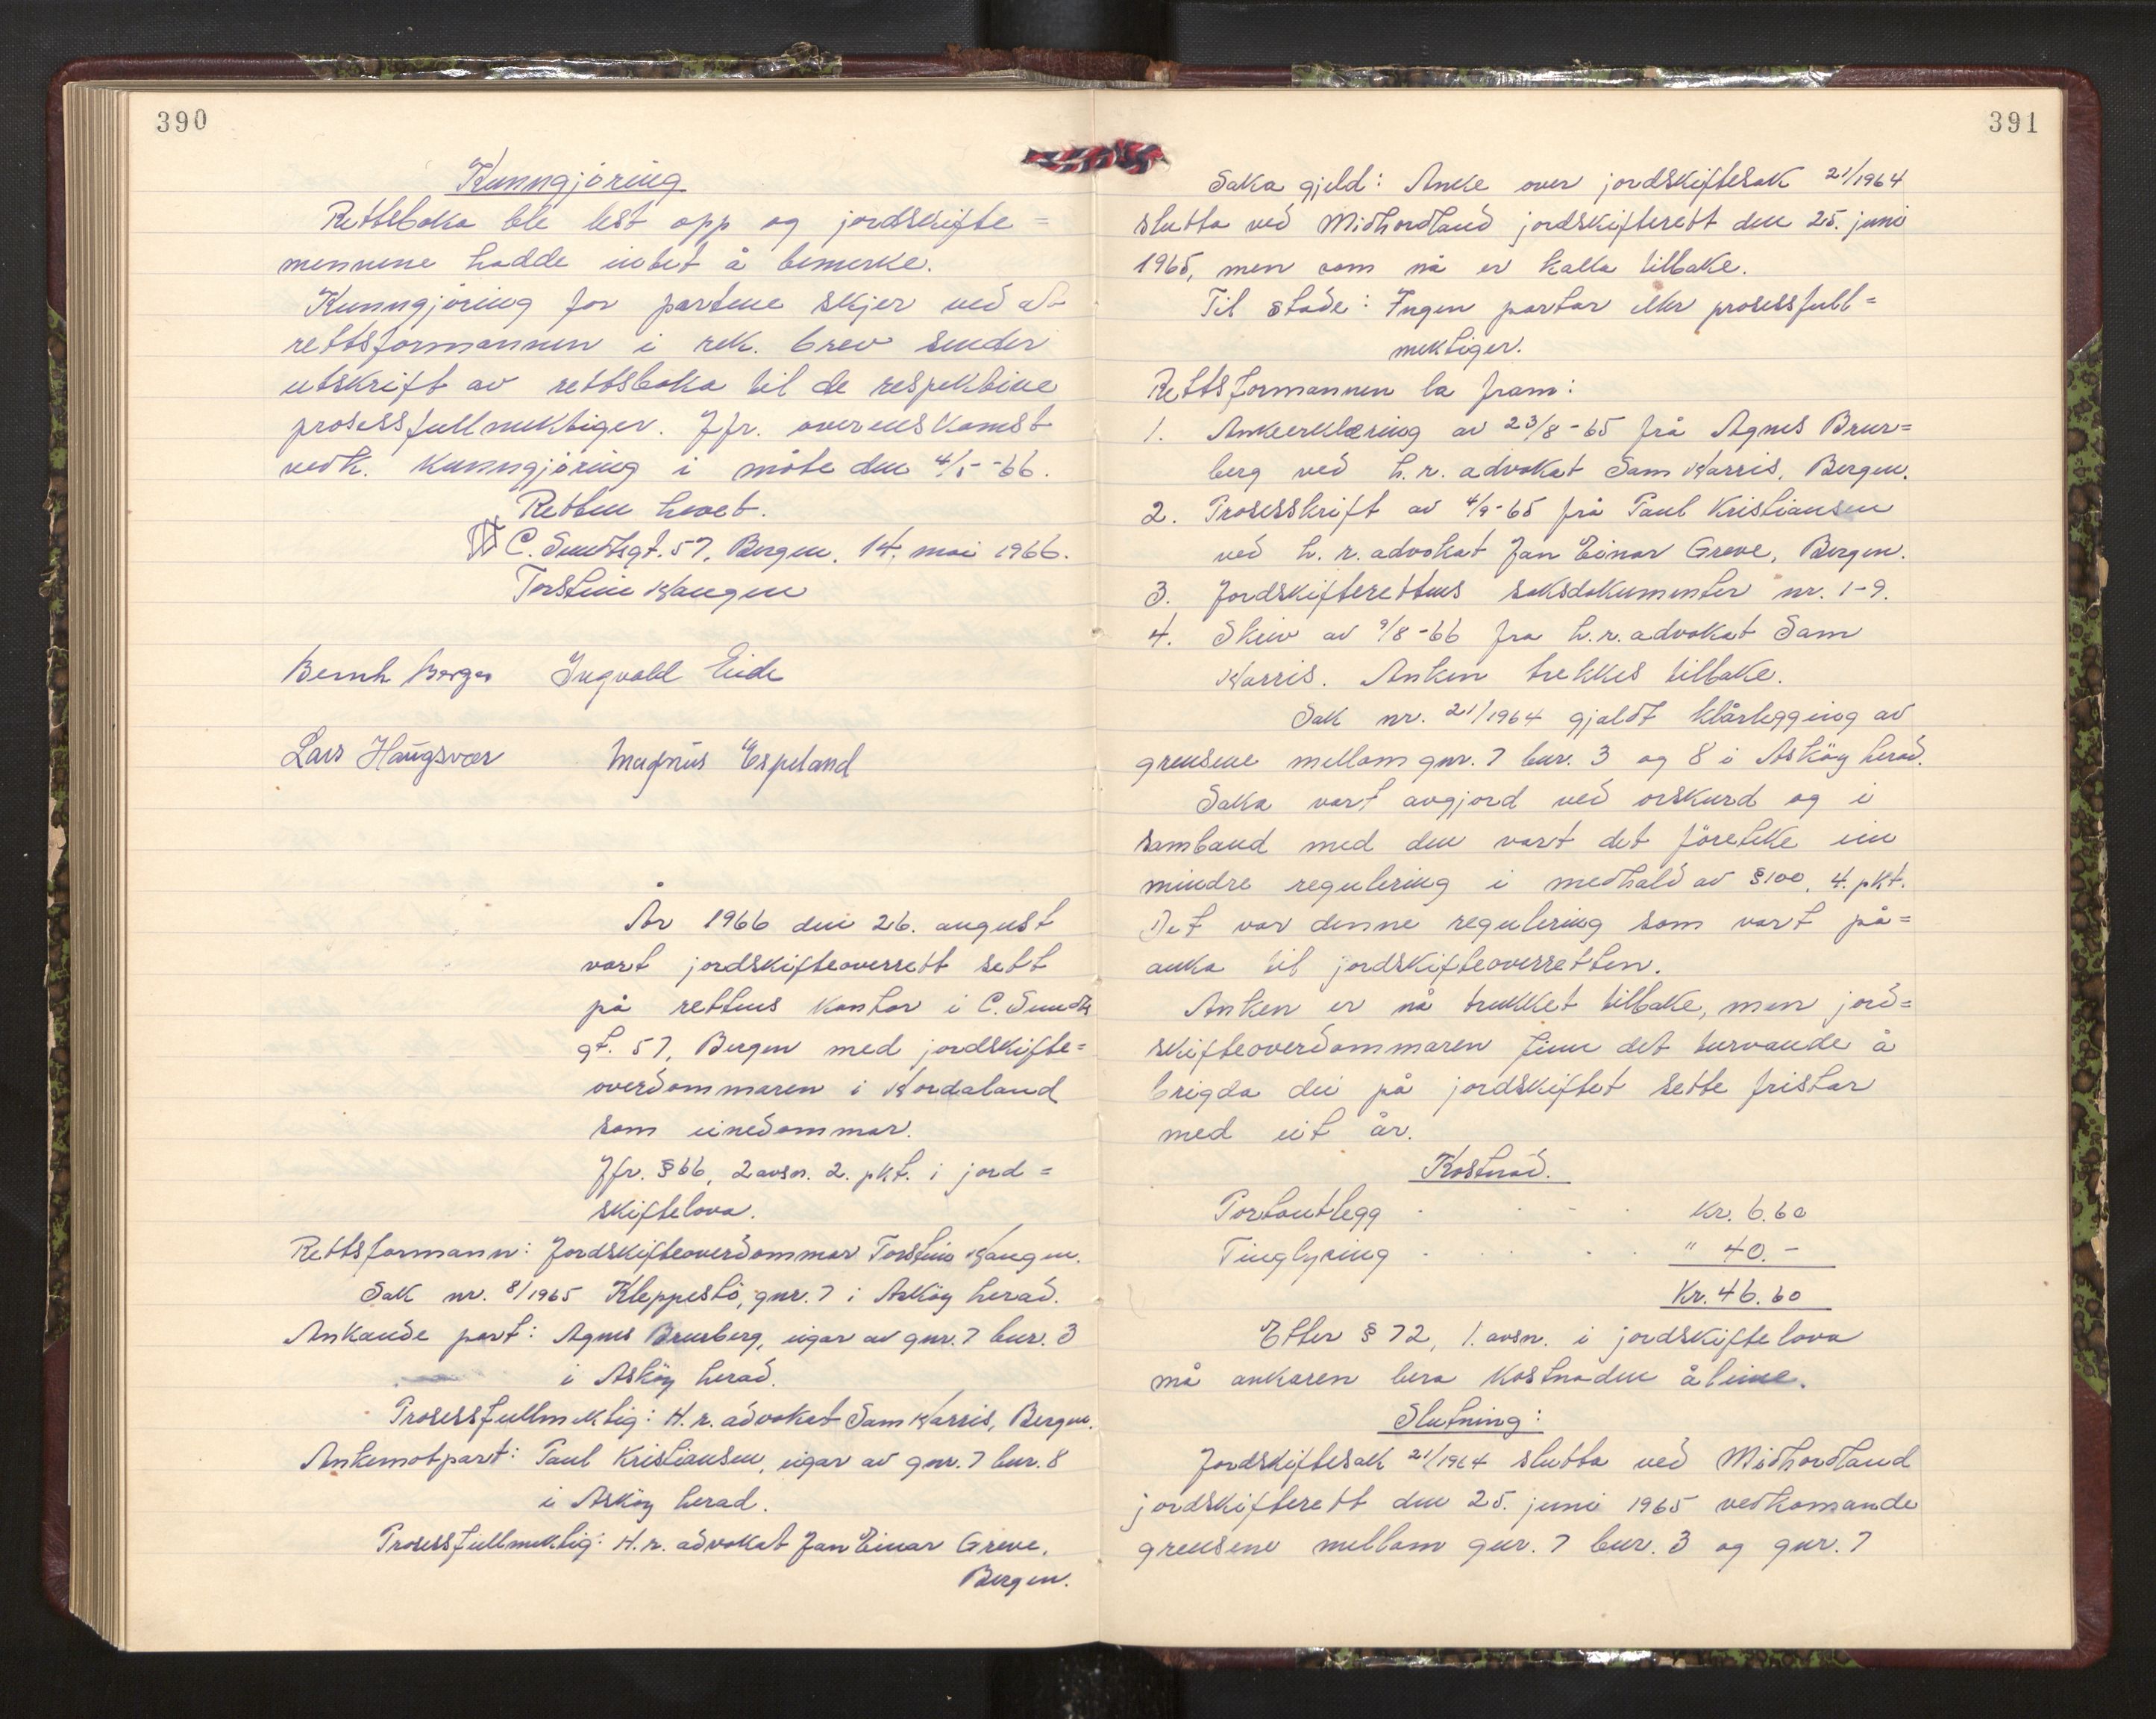 390
Kunngjøring
Rettsboka ble lest opp og jordskifte=
mennene hadde intet å bemerke.
Kunngjøring for partene skjer ved at
rettsformannen i rek. brev sender
utskrift av rettsboka til de respektive
prosessfullmektiger. Jfr. overenskomst
vedk. kunngjøring i møte den 4/5-66.
Retten hevet.
C. Sundtsgt. 57, Bergen, 14. mai 1966.
Torstein Haugen
Bernh Berge Ingvald Eide
Lars Haugsvær Magnus Espeland
År 1966 den 26. august
vart jordskifteoverrett sett
på rettens kontor i C. Sundts
gt. 57, Bergen med jordskifte=
overdommaren i Hordaland
som einedommar.
Jfr. § 66, 2 avsn. 2. pkt. i jord=
skiftelova.
Rettsformann: Jordskifteoverdommar Torstein Haugen.
Sak nr. 8/1965 Kleppestö, gnr. 7 i Asköy herad.
Ankande part: Agnes Brurberg, eigar av gnr. 7 bnr. 3
i Asköy herad.
Prosessfullmektig: H. r. advokat Sam Harris, Bergen.
Ankemotpart: Paul Kristiansen, eigar av gnr. 7 bnr. 8
i Asköy herad.
Prosessfullmektig: H. r. advokat Jan Einar Greve,
Bergen.
391
Saka gjeld: Anke over jordskiftesak 21/1964
slutta ved Midhordland jordskifterett den 25. juni
1965, men som nå er kalla tilbake.
Til stade: Ingen partar eller prosessfull=
mektiger.
Rettsformannen la fram:
1. Ankeerklæring av 23/8-65 frå Agnes Brur=
berg ved h. r. advokat Sam Harris, Bergen.
2. Prosesskrift av 4/9-65 frå Paul Kristiansen
ved h. r. advokat Jan Einar Greve, Bergen.
3. Jordskifterettens saksdokumenter nr. 1-9.
4. Skriv av 9/8-66 fra h. r. advokat Sam
Harris. Anken trekkes tilbake.
Sak nr. 21/1964 gjaldt klårlegging av
grensene mellom gnr. 7 bnr. 3 og 8 i Asköy herad.
Saka vart avgjord ved orskurd og i
samband med den vart det företeke ein
mindre regulering i medhald av § 100, 4. pkt.
Det var denne regulering som vart på=
anka til jordskifteoverretten.
Anken er nå trukket tilbake, men jord=
skifteoverdommaren finn det turvande å
brigda dei på jordskiftet sette fristar
med eit år.
Kostnad.
Portoutlegg . . . . kr. 6.60
Tinglysing . . . . " 40.-
Kr. 46.60
Etter § 72, 1. avsn. i jordskiftelova
må ankaren bera kostnaden åleine.
Slutning:
Jordskiftesak 21/1964 slutta ved Midhordland
jordskifterett den 25. juni 1965 vedkomande
grensene mellom gnr. 7 bnr. 3 og gnr. 7